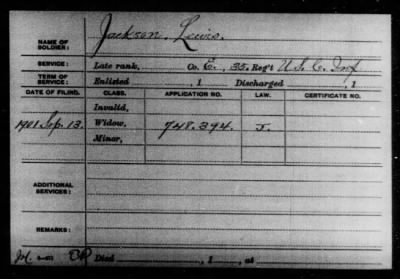 NAME OF SOLDIER: Jackson, Lewis.
SERVICE: Late rank, Co. E, 35 Reg't U.S.C. Inf
TERM OF SERVICE: Enlisted , 1 Discharged , 1
DATE OF FILING. CLASS. APPLICATION NO. LAW. CERTIFICATE NO.
Invalid,
1901 Sep. 13. Widow, 748.394. J.
Minor,
ADDITIONAL SERVICES:
REMARKS:
Died , 1 , at